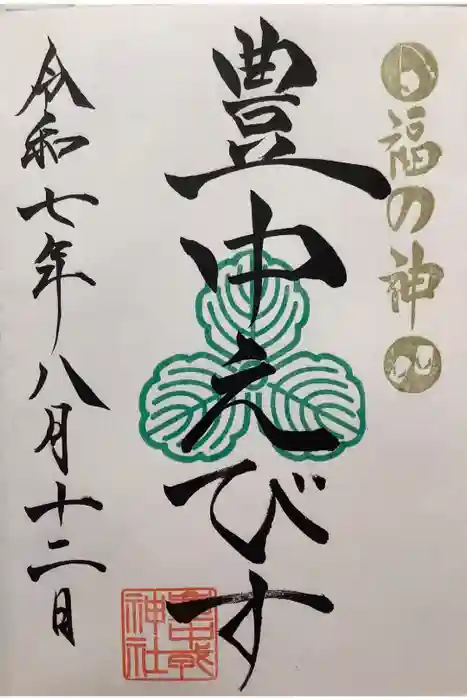 福の神
豊中えびす
令和七年八月十二日
豊中戎
神社